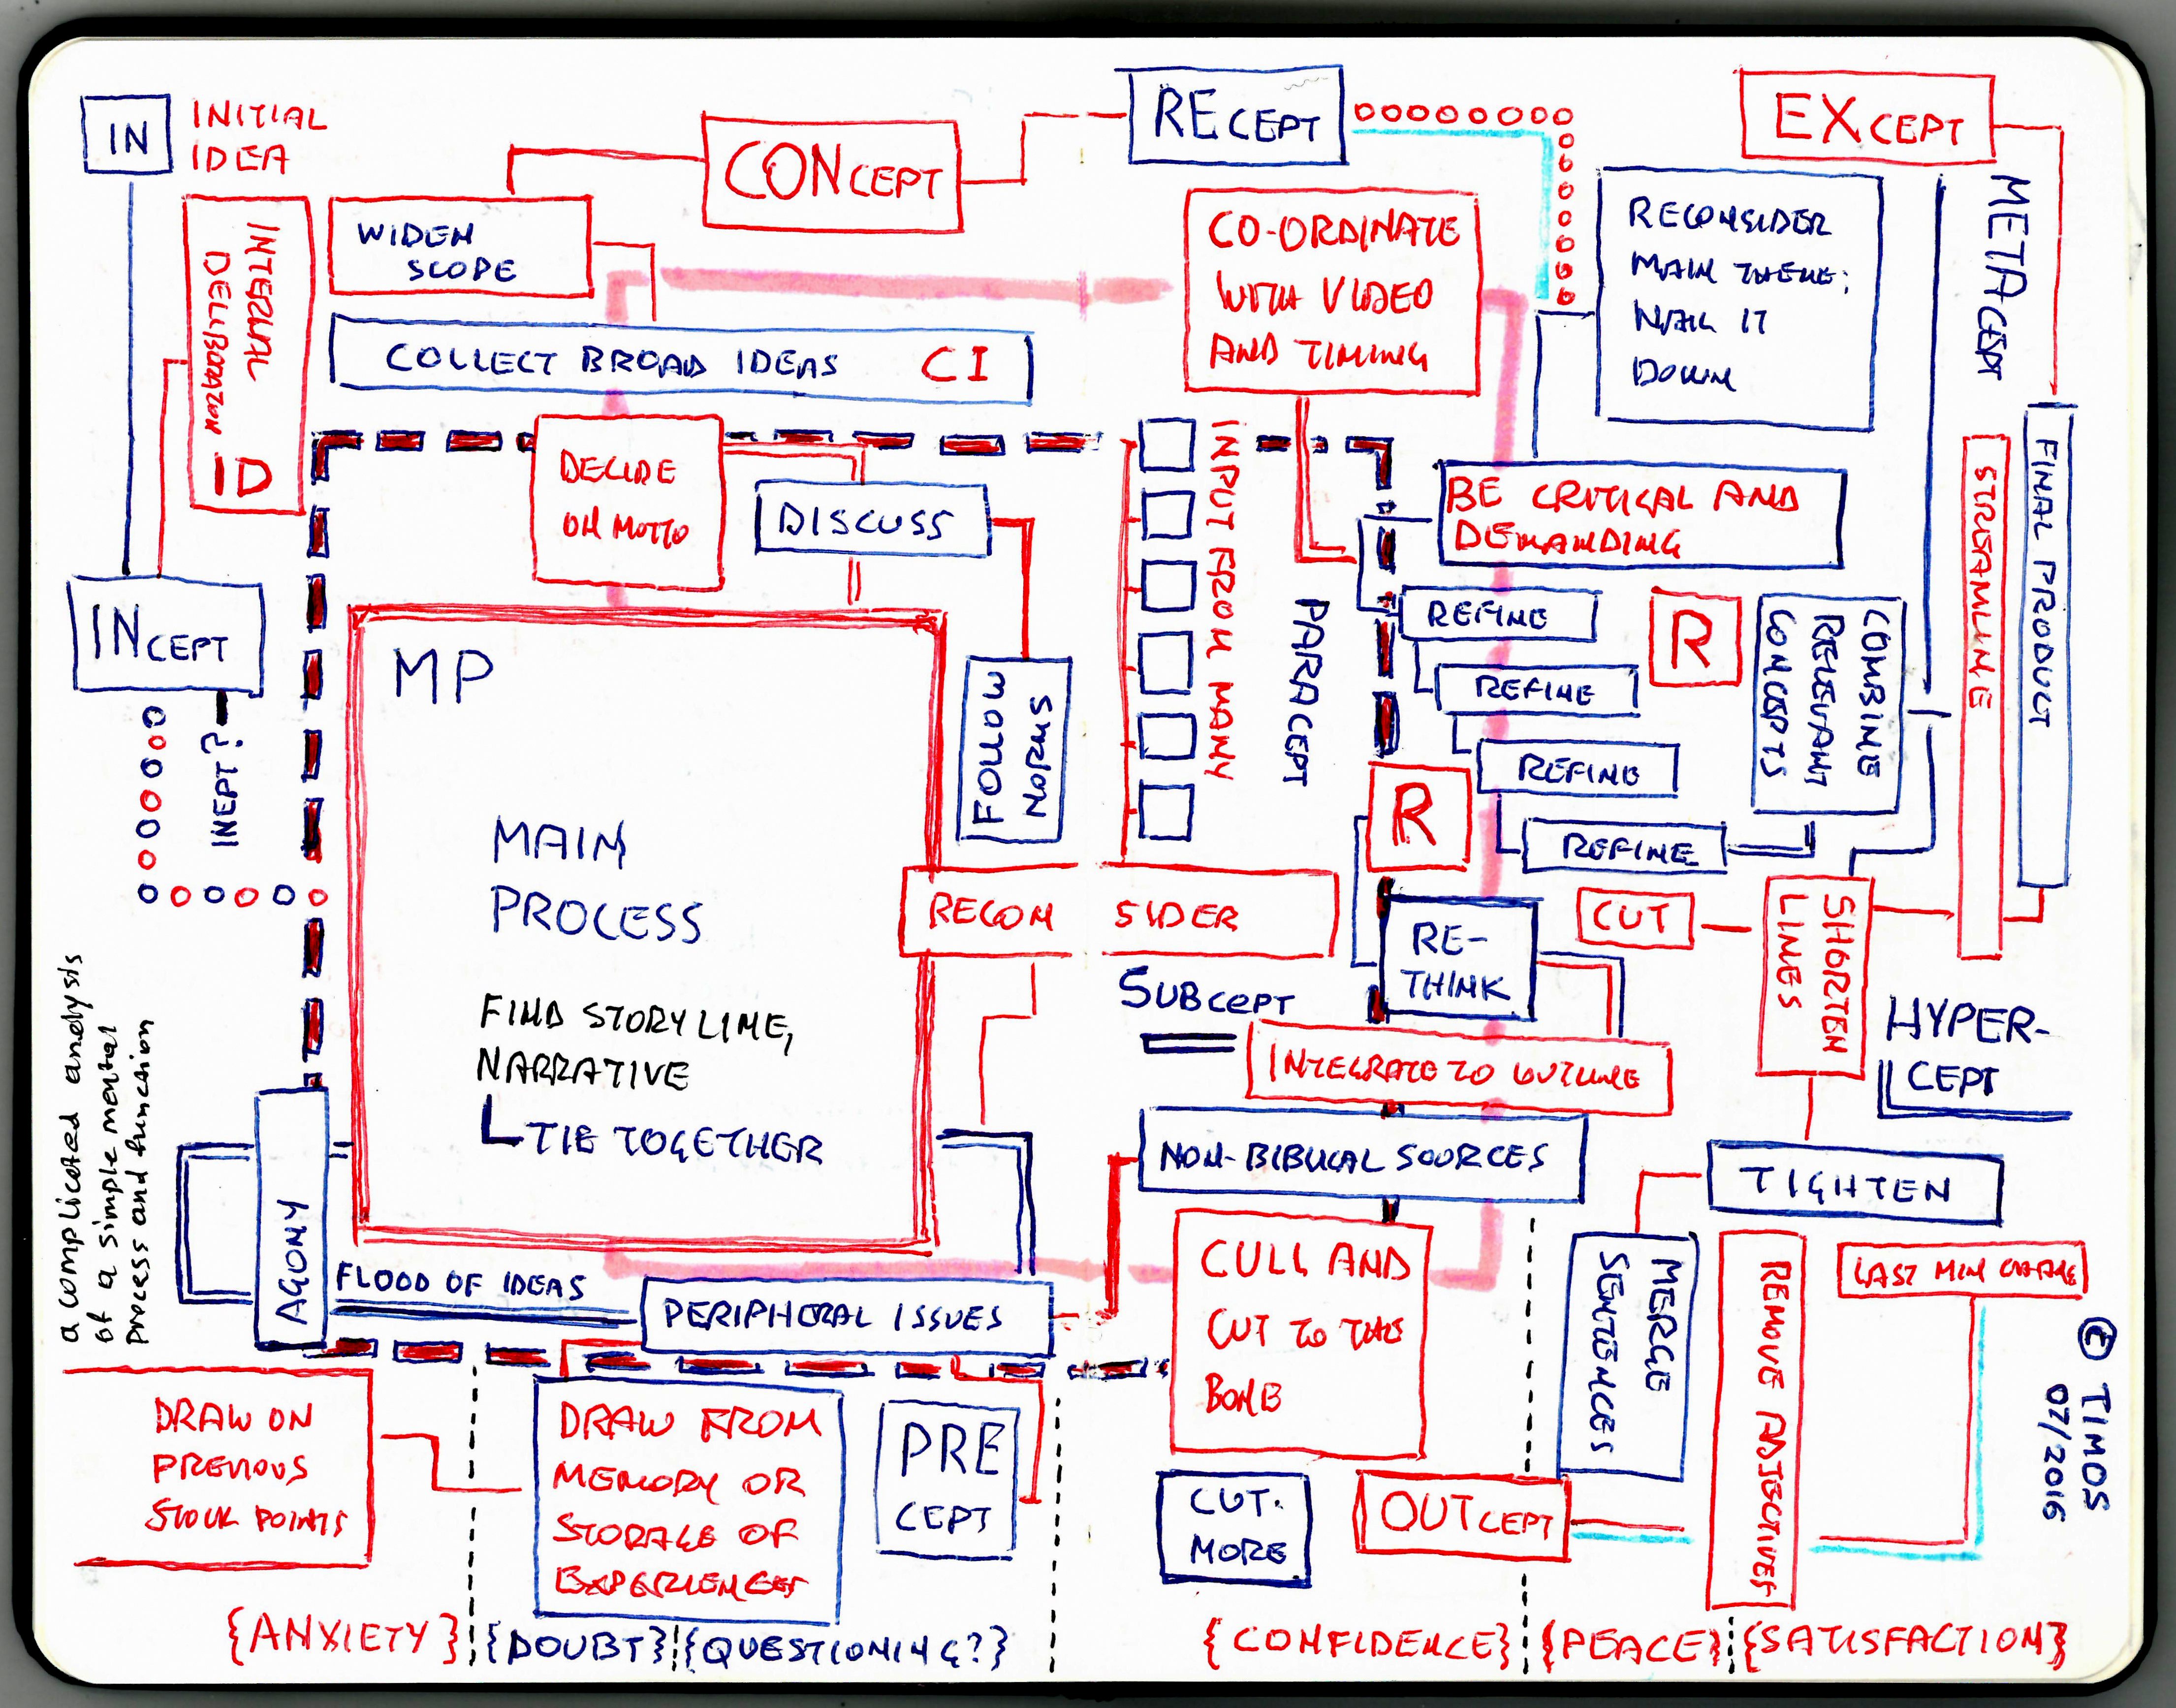 IN
INITIAL
IDEA
INTERNAL
DELIBERATION
ID
WIDEN
SCOPE
CONCEPT
RECEPT
EXCEPT
COLLECT BROAD IDEAS CI
CO-ORDINATE
WITH VIDEO
AND TIMING
RECONSIDER
MAIN THEME;
NAIL IT
DOWN
METACEPT
FINAL PRODUCT
STREAMLINE
DECIDE
ON MOTTO
DISCUSS
INPUT FROM MANY
PARACEPT
BE CRITICAL AND
DEMANDING
INCEPT
INEPT?
MP
MAIN
PROCESS
FIND STORYLINE,
NARRATIVE
TIE TOGETHER
FOLLOW
NORMS
REFINE
REFINE
REFINE
REFINE
R
R
COMBINE
RELEVANT
CONCEPTS
RECON SIDER
RE-
THINK
CUT
SHORTEN
LINES
SUBCEPT
HYPER-
CEPT
INTEGRATE TO OUTLINE
NON-BIBLICAL SOURCES
TIGHTEN
a complicated analysis
of a simple mental
process and function
AGONY
FLOOD OF IDEAS
PERIPHERAL ISSUES
CULL AND
CUT TO THE
BONE
MERGE
SENTENCES
REMOVE ADJECTIVES
LAST MIN CHANGE
© TIMOS
07/2016
DRAW ON
PREVIOUS
STOCK POINTS
DRAW FROM
MEMORY OR
STORAGE OF
EXPERIENCES
PRE
CEPT
CUT
MORE
OUTCEPT
{ANXIETY} {DOUBT} {QUESTIONING?} {CONFIDENCE} {PEACE} {SATISFACTION}